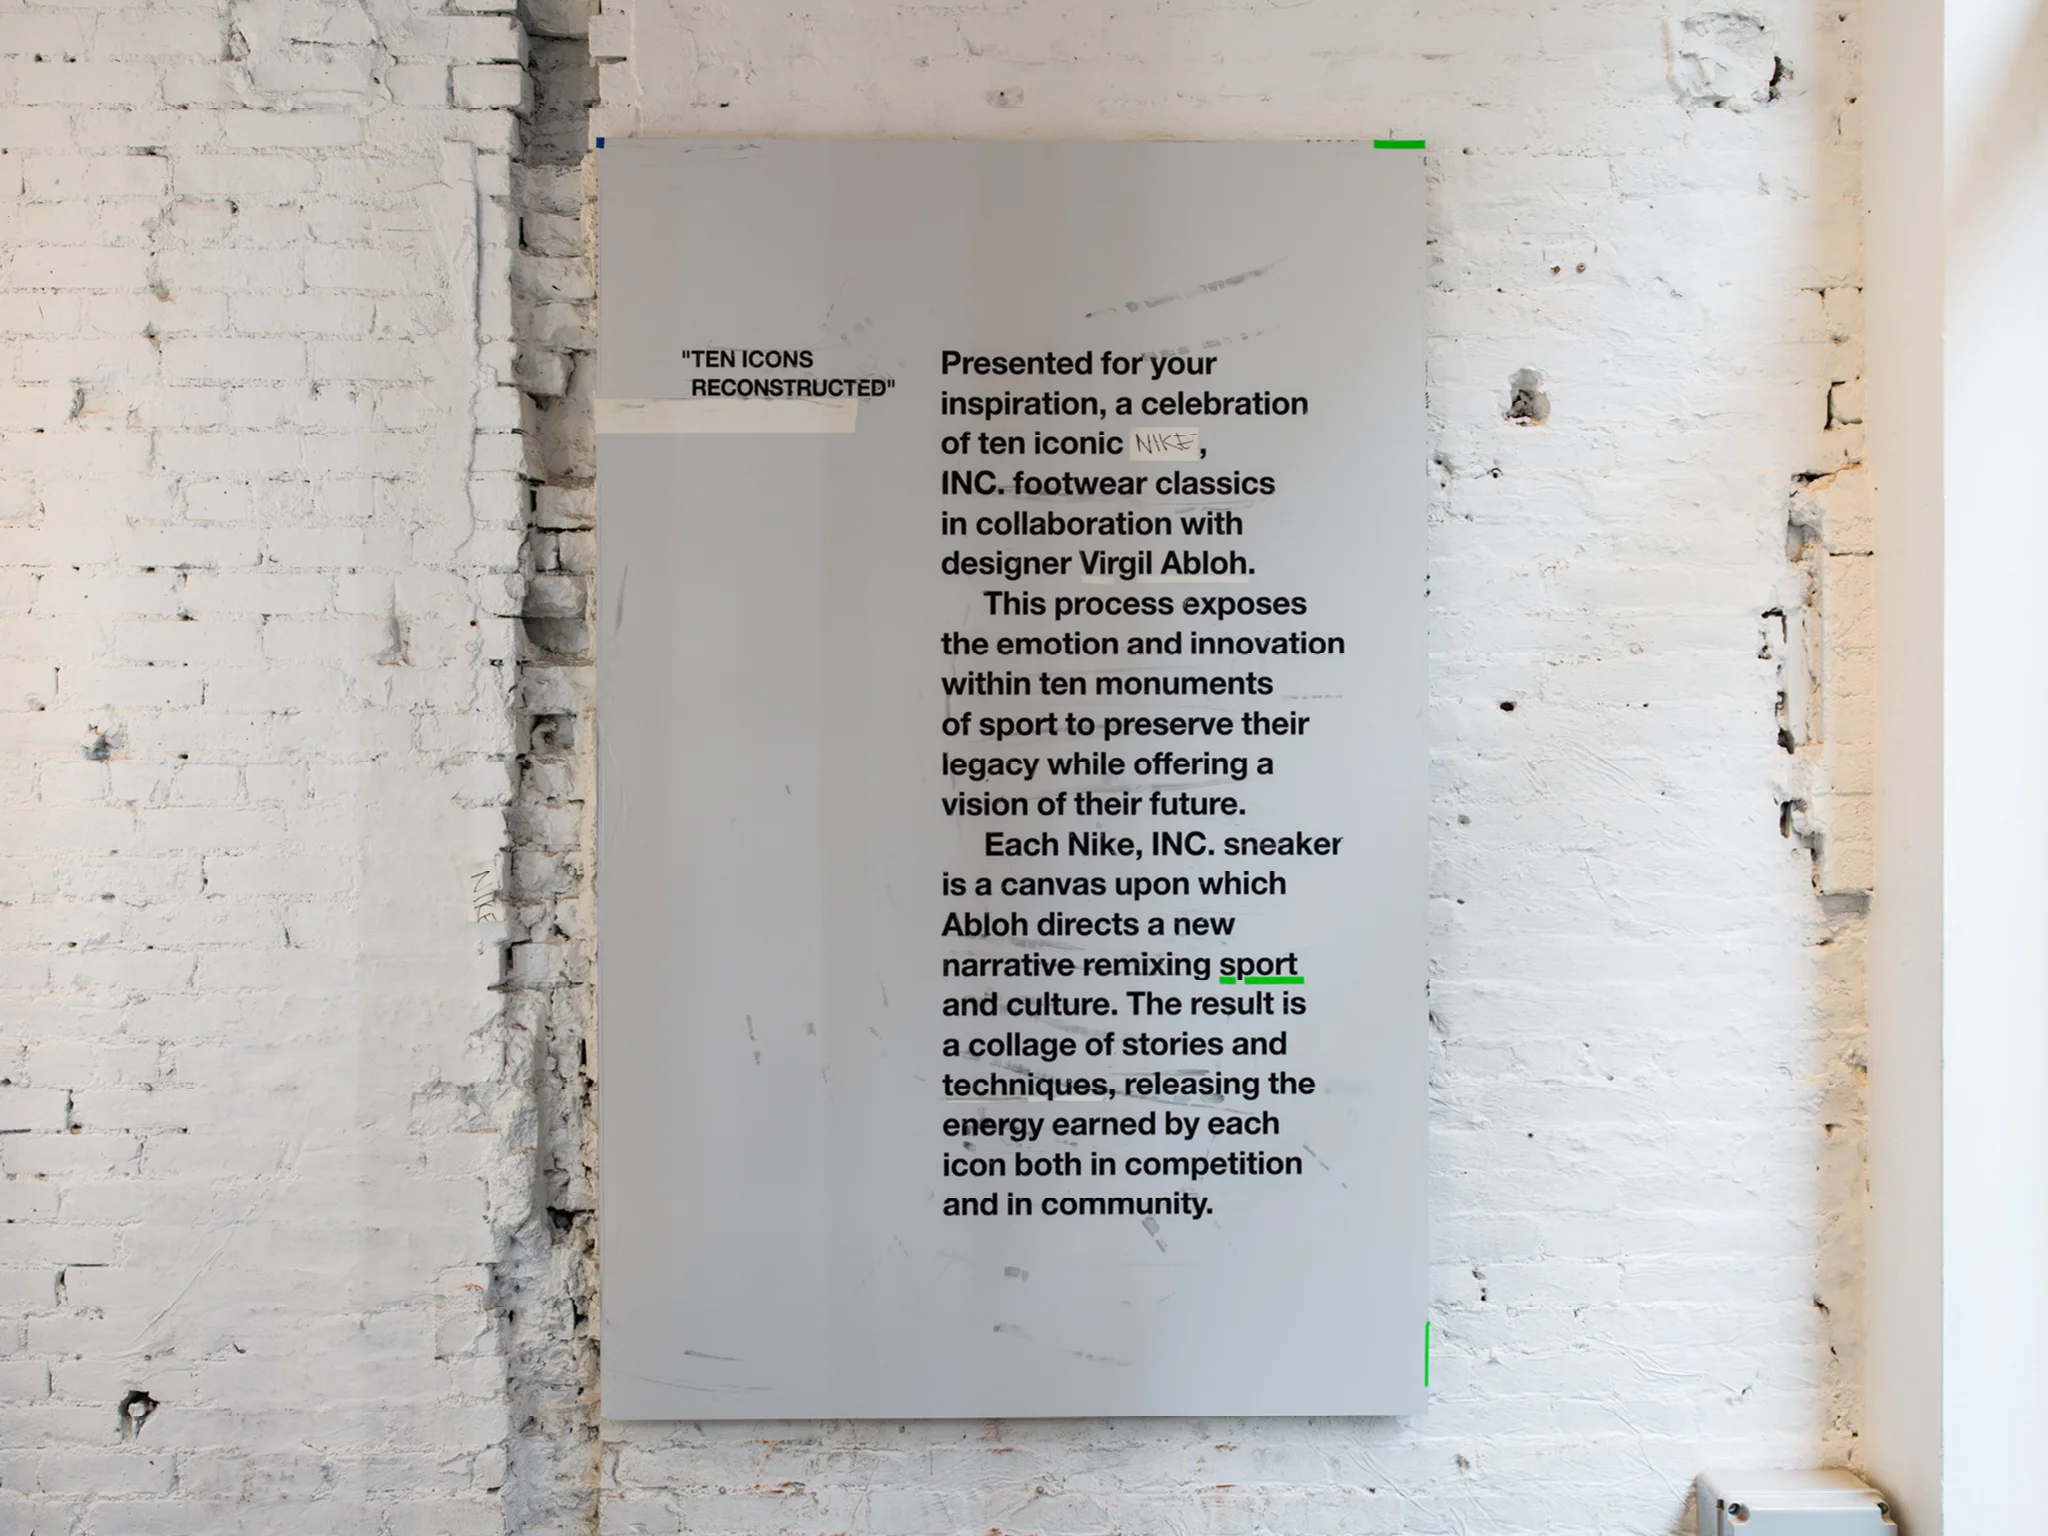 "TEN ICONS
RECONSTRUCTED"
Presented for your
inspiration, a celebration
of ten iconic NIKE,
INC. footwear classics
in collaboration with
designer Virgil Abloh.
This process exposes
the emotion and innovation
within ten monuments
of sport to preserve their
legacy while offering a
vision of their future.
Each Nike, INC. sneaker
is a canvas upon which
Abloh directs a new
narrative remixing sport
and culture. The result is
a collage of stories and
techniques, releasing the
energy earned by each
icon both in competition
and in community.
NIKE